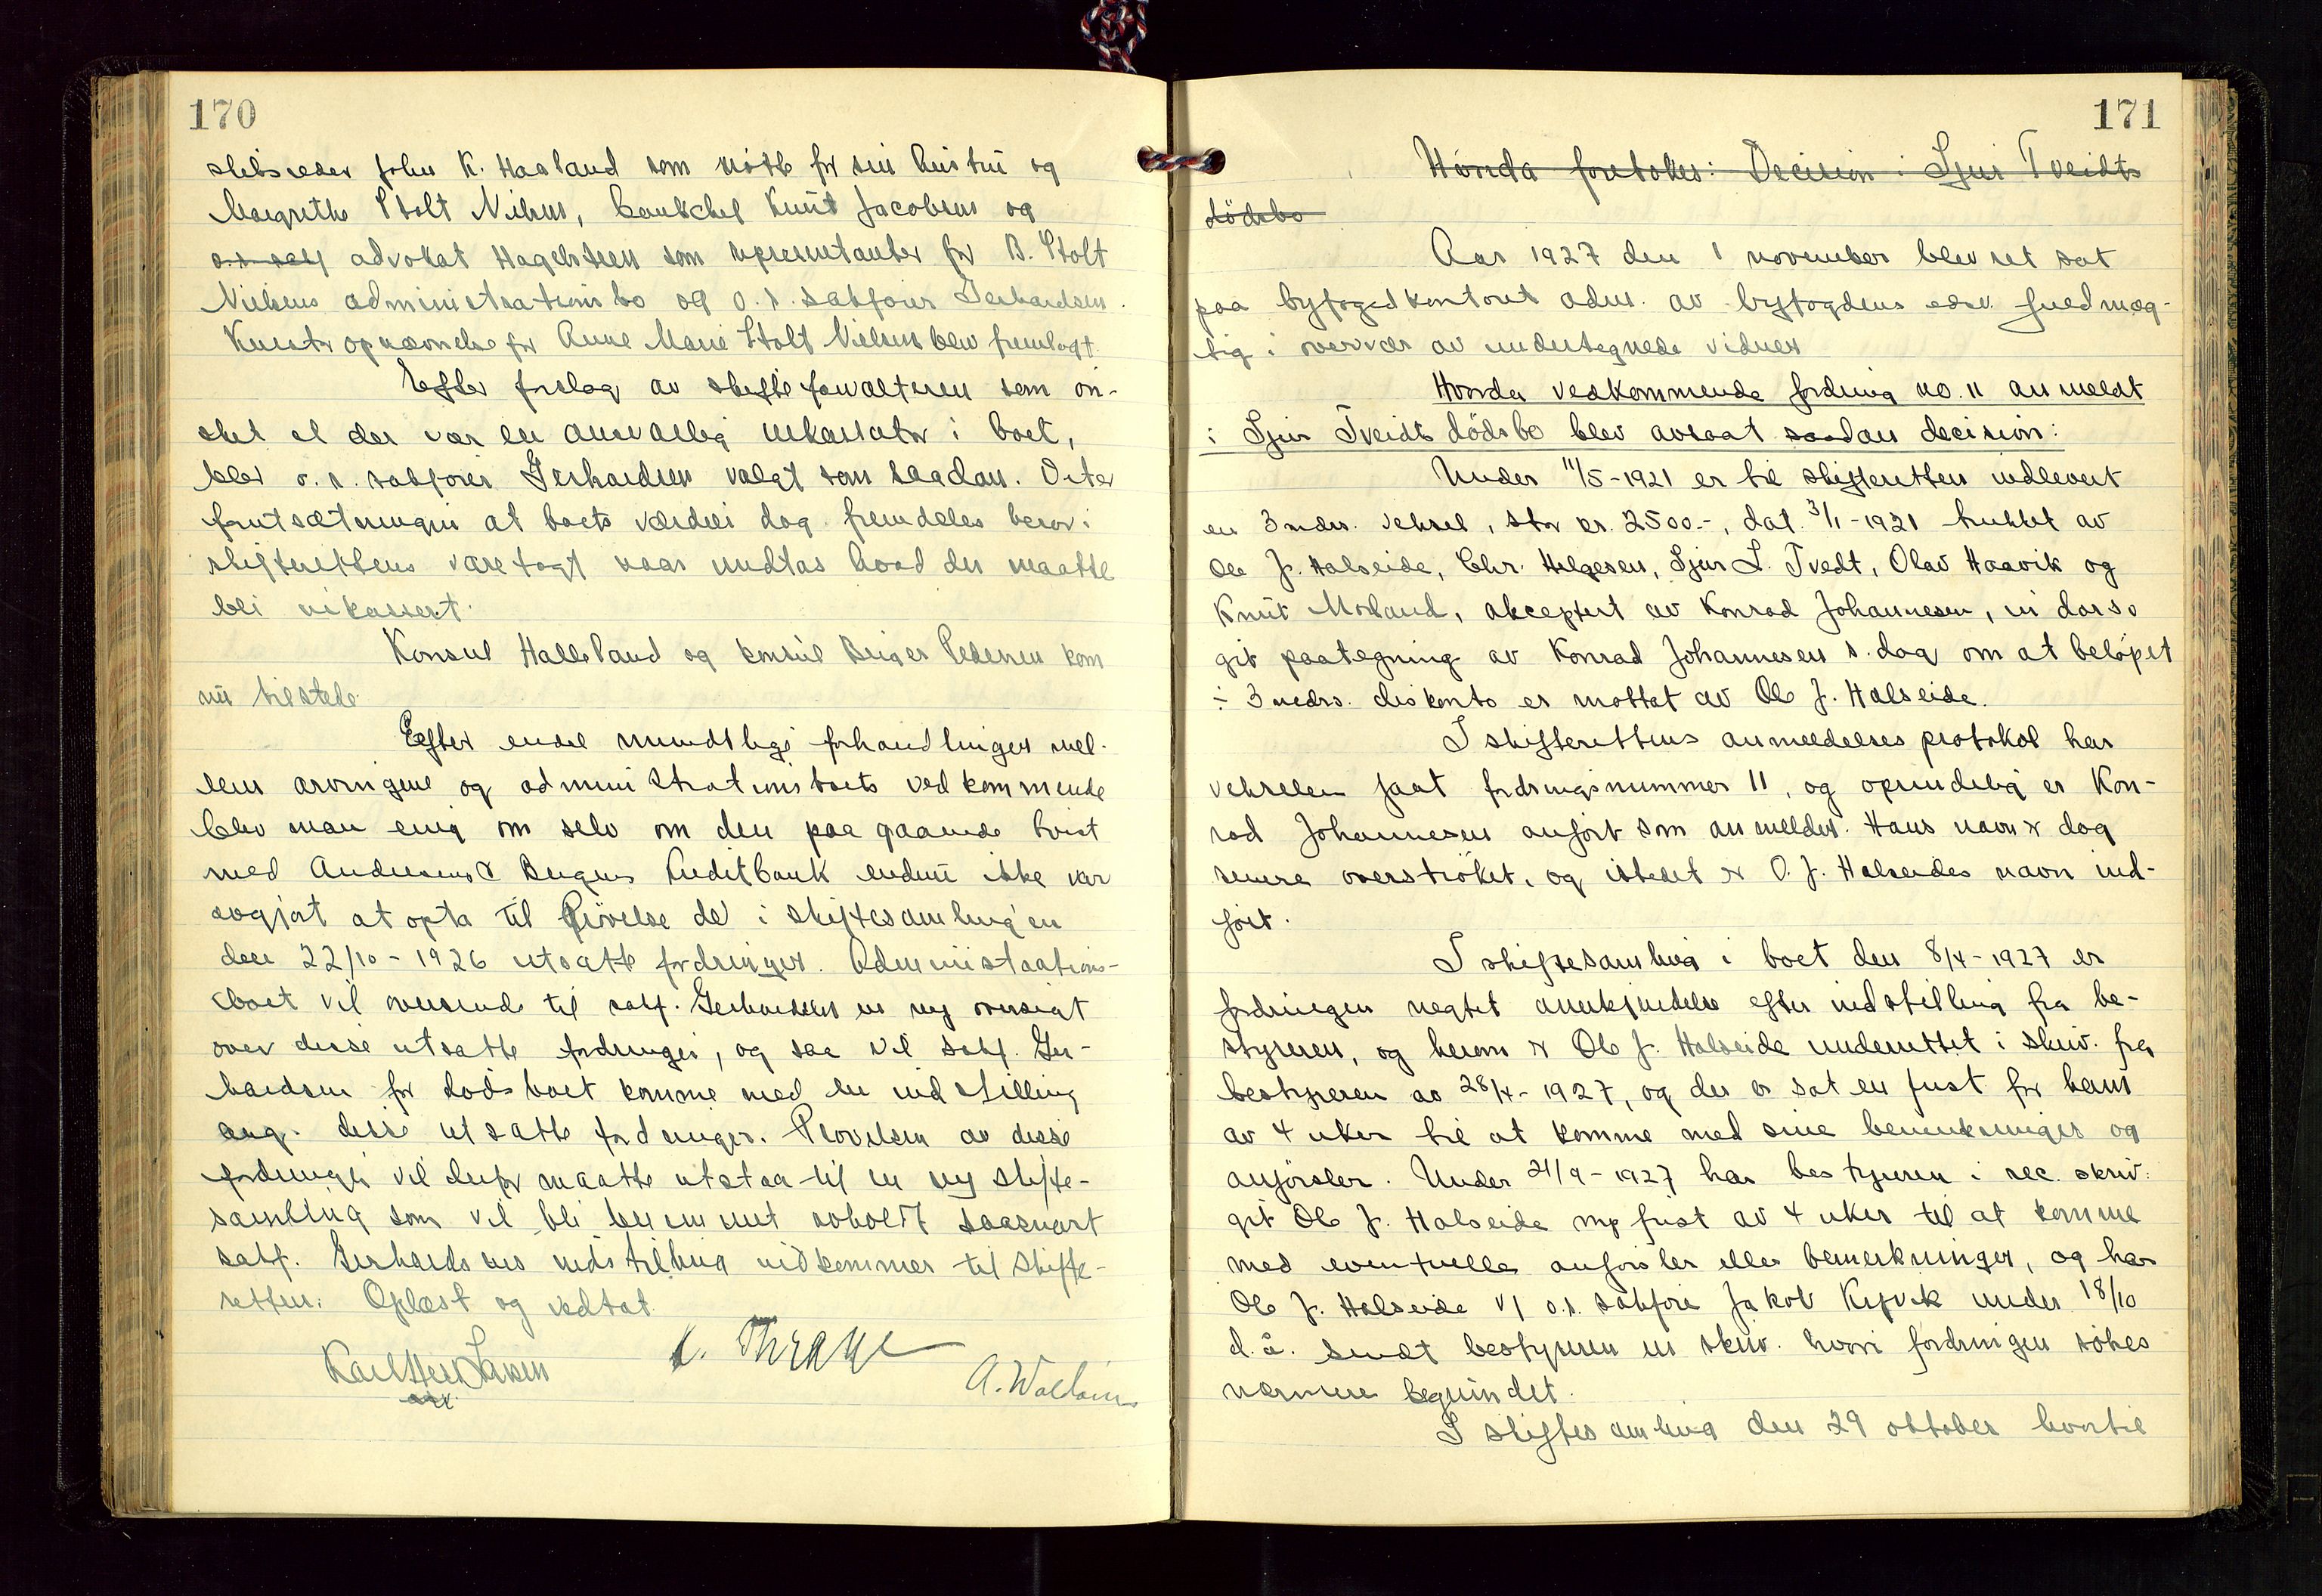 170
skibsreder John K. Haaland som møtte for sin hustru og
Margrethe Stolt Nielsen, bankchef Knut Jacobsen og
o.r. sakf advokat Hagelsteen som representanter for B. Stolt
Nielsens administrationsbo og o.r. sakfører Gerhardsen.
opnævnelse for Anne Marie Stolt Nielsen blev fremlagt.
Efter forslag av skifteforvalteren som øn-
sket at der var en ansvarlig inkassator i boet,
blev o.r. sakfører Gerhardsen valgt som saadan. Efter
forutsætningen at boets værdier dog fremdeles beror i
skifterettens varetægt naar undtas hvad der maatte
bli inkassert.
Konsul Halleland og konsul Birger Pedersen kom
nu tilstede.
Efter endel mundtlige forhandlinger mel-
lem arvingene og administrationsboets vedkommende
blev man enig om selv om den paagaaende tvist
med Andresens & Bergens Kreditbank endnu ikke var
avgjort at opta til prøvelse de i skiftesamlingen
den 22/10-1926 utsatte fordringer. Administrations-
boet vil oversende til sakf. Gerhardsen en ny oversigt
over disse utsatte fordringer, og saa vil sakf. Ger-
hardsen for dødsboet komme med en indstilling
ang. disse utsatte fordringer. Prøvelsen av disse
fordringer vil derfor maatte utstaa til en ny skifte-
samling som vil bli berammet avholdt saasnart
sakf. Gerhardsens indstilling indkommer til skifte-
retten. Oplæst og vedtat.
Karl Larsen
adv.
K. Thrane
A. Wallam
171
Hvorda foretokes: Decision i Sjur Tveidts
dödsbo
Aar 1927 den 1 november blev ret sat
paa byfogedkontoret adm. av byfogdens edsv. fuldmæg-
tig i overvær av undertegnede vidner
Hvorda vedkommende fordring no. 11 anmeldt
i Sjur Tveidts dödsbo blev avsagt saadan decision:
Under 11/5-1921 er til skifteretten indlevert
en 3 mdrs. veksel, stor kr. 2500.-, dat. 3/1-1921 trukket av
Ole J. Halseide, Chr. Helgesen, Sjur L. Tvedt, Olav Haavik og
Knut Morland, akceptert av Konrad Johannesen, in dorso
git paategning av Konrad Johannesen s. dag om at beløpet
÷ 3 mdrs. diskonto er mottat av Ole J. Halseide.
I skifterettens anmeldelsesprotokol har
vekselen faat fordringsnummer 11, og oprindelig er Kon-
rad Johannesen anført som anmelder. Hans navn er dog
senere overstrøket, og istedet er O. J. Halseides navn ind-
ført.
I skiftesamling i boet den 8/4-1927 er
fordringen negtet anerkjendelse efter indstilling fra be-
styreren, og herom er Ole J. Halseide underrettet i skriv. fra
bestyreren av 28/4-1927, og der er sat en frist for ham
av 4 uker til at komme med sine bemerkninger og
anförsler. Under 21/9-1927 har bestyreren i rec. skriv.
git Ole J. Halseide ny frist av 4 uker til at komme
med eventuelle anførsler eller bemerkninger, og har
Ole J. Halseide v/ o.r. sakfører Jakob Kyvik under 18/10
d.å. sendt bestyreren en skriv. hvori fordringen søkes
nærmere begrundet.
I skiftesamling den 29 oktober hvortil